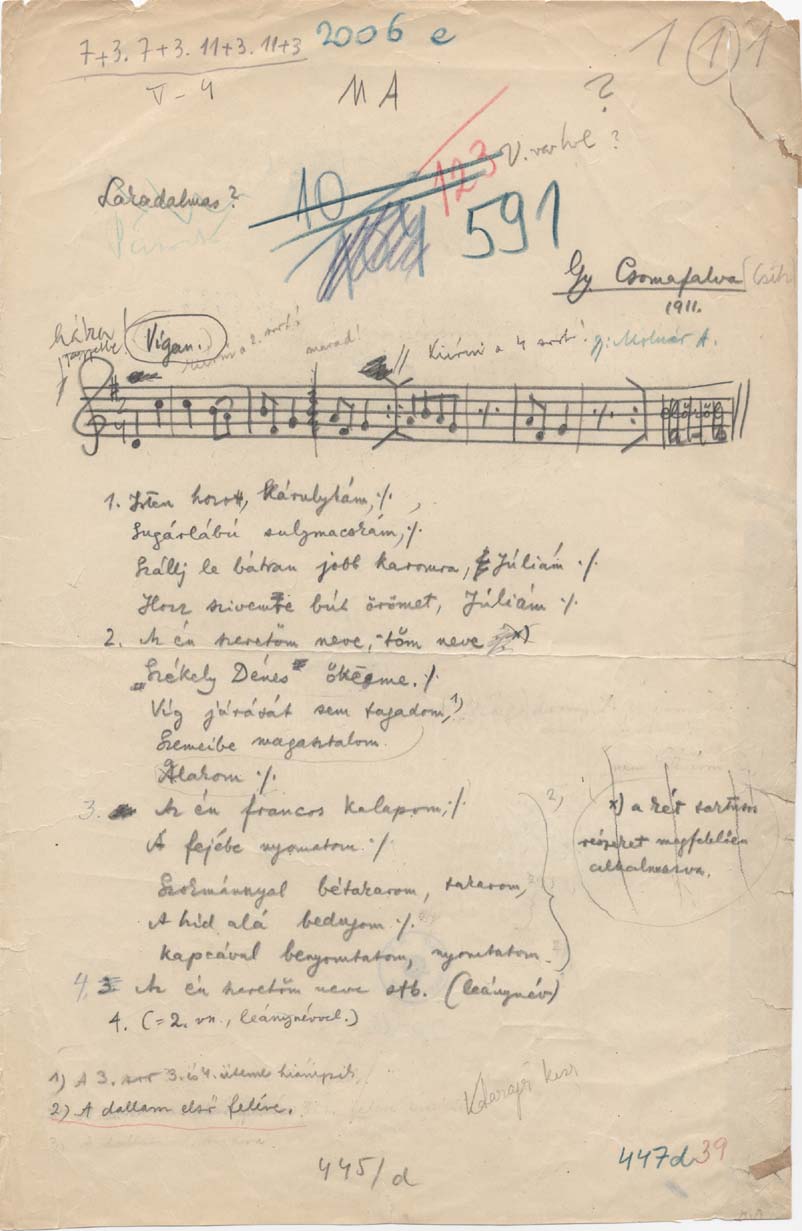 7+3. 7+3. 11+3. 11+3
2006 e
1 1 1
V-4
MA
?
10
123
591
Gy Csomafalva (Csik)
1911.
Vígan.
marad!
Kiírni a 4 sort! Gy: Molnár A.
1. Isten hozott, Károlykám, ./.
Sugárlábú
Szállj le bátran jobb karomra, Júliám ./.
Hozz szivemre bút örömet, Júliám ./.
2. Az én szeretőm neve, -tőm neve x)
„Székely Dénes" őkegme. ./.
Víg járását sem tagadom, 1)
Szemeibe magasztalom.
Alakom ./.
3. Az én francos kalapom, ./.
A fejébe nyomatom. ./.
bétakarom, takarom,
A híd alá bedugom ./.
kapcával benyomtatom, nyomtatom.
2)
x) a két
részeket megfelelően
alkalmazva.
4. 3. Az én szeretőm neve stb. (leánynév)
4. (=2. vsz., leánynévvel.)
1) A 3. sor 3. és 4. üteme hiányzik.
2) A dallam első felére.
445/d
447d 39